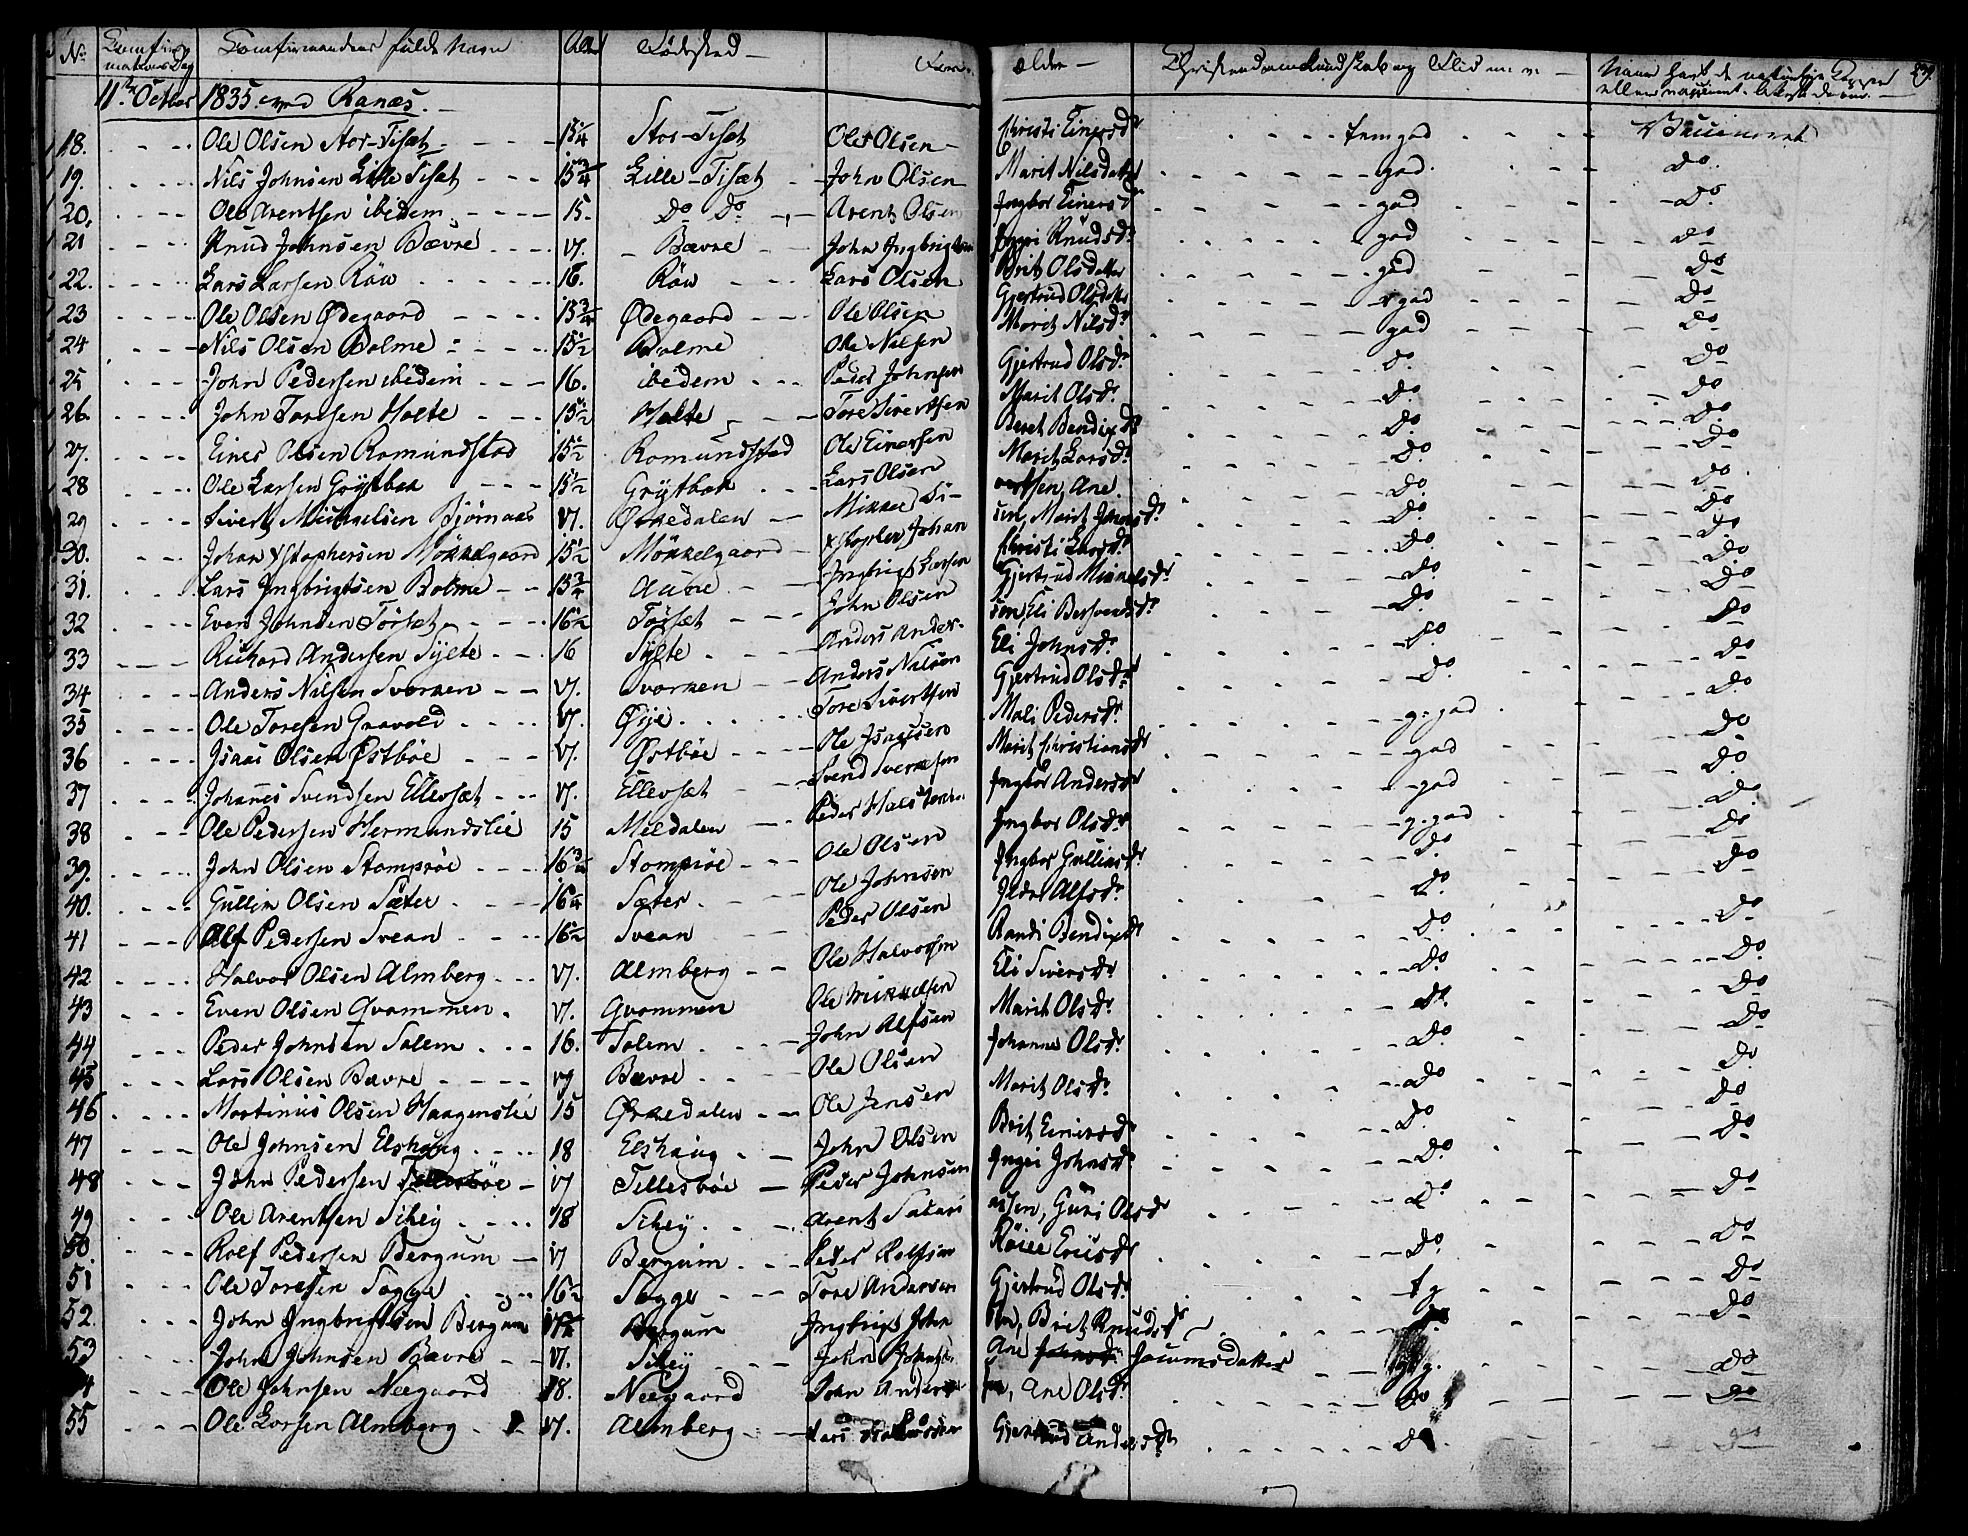 No Confirmations Dag Confirmandens fulde Navn Alder Fødested Forældre Christendomskundskab og Flid
11te October 1835 ved Ranæs.
18. Ole Olsen Stor-Tisæt 15 1/4 Stor-Tisæt Ole Olsen Christi Einersdr temgod Vaccineret
19. Nils Johnsen Lille Tisæt 15 3/4 Lille-Tisæt John Olsen Marit Nilsdatter god Do
20. Ole Arentsen ibedem 15. Do Do Arent Olsen Ingbor Einersdr god Do
21 Knud Johnsen Bævre 17. Bævre John Ingbrigtsen Ingri Knudsdr god Do
22. Lars Larsen Röv 16. Röv Lars Olsen Brit Olsdatter god Do
23 Ole Olsen Ødegaard 15 3/4 Ødegaard Ole Olsen Gjertrud Olsdatter god Do
24 Nils Olsen Bolme 15 1/2 Bolme Ole Nilsen Marit Nilsdr god Do
25 John Pedersen ibedem 16. ibedem Peder Johnsen Gjertrud Olsdr Do Do
26 John Toresen Holte 15 1/2 Holte Tore Sivertsen Marit Olsdr Do Do
27. Einer Olsen Romundstad 15 1/2 Romundstad Ole Einersen Beret Bendixdr Do Do
28 Ole Larsen Grytbak 15 1/2 Grytbak Lars Olsen Marit Larsdr Do Do
29 Sivert Michaelsen Bjørnaas 17. Ørkedalen Mikkel Sivertsen, Ane. Do Do
30. Johan Xstophersen Mökkelgaard 15 1/2 Mökkelgaard Xstopher Johansen, Marit Johnsdr Do Do
31. Lars Ingbrigtsen Bolme 15 3/4 Aune Ingbrigt Larsen Christi Larsdr Do Do
32 Even Johnsen Törsæt 16 1/2 Törsæt John Olsen Gjertrud Mikkelsdr Do Do
33 Richard Andersen Sylte 16 Sylte Anders Andersen, Eli Bersvendsdr Do Do
34 Anders Nilsen Svorken 17. Svorken Anders Nilsen Eli Johnsdr Do Do
35 Ole Toresen Gravold 17. Øye Tore Sivertsen Gjertrud Olsdr Do Do
36 Isaac Olsen Østböe 17. Østböe Ole Isacsen Mali Pedersdr g. god Do
37 Johanes Svendsen Ellevsæt 17. Ellevsæt Svend Svendsen Marit Christiansdr god Do
38 Ole Pedersen Hermundslie 15 Meldalen Peder Halstens. Ingbor Andersdr god Do
39. John Olsen Stomprøe 16 3/4 Stomprøe Ole Olsen Ingbor Olsdr g. god Do
40. Gullik Olsen Sæter 16 1/4 Sæter Ole Johnsen Ingbor Gulliksdr Do Do
41 Alf Pedersen Svean 16 1/2 Svean Peder Olsen Alfsdr Do Do
42 Halvor Olsen Almberg 17. Almberg Ole Halvorsen Randi Bendixdr Do Do
43 Even Olsen Qvammen 17. Qvammen Ole Mikkelsen Eli Siversdr Do Do
44 Peder Johnsen Solem 16. Solem John Alfsen Marit Olsdr Do Do
45 Lars Olsen Bævre 17 Bævre Ole Olsen Johanne Olsdr Do Do
46 Martinus Olsen Haagenslie 15 Ørkedalen Ole Jensen Marit Olsdr Do Do
47 Ole Johnsen Elshaug 18 Elshaug John Olsen Brit Einersdr Do Do
48 John Pedersen Tellesböe 17 Tellesböe Peder Johnsen Ingri Johnsdr Do Do
49 Ole Arentsen Schey 18 Schey Arent Guri Olsdr Do Do
50. Rolf Pedersen Bergum 17 Bergum Peder Rolfsen Do Do
51 Ole Toresen Sogge 16 1/2 Sogge Tore Andersen Gjertrud Olsdr tg Do
52. John Ingbrigtsen Bergum Bergum Ingbrigt Johnsen, Brit Knudsdr Do
53 John Johnsen Bævre 17. Schey John Johnsen Ane Joensdatter g. Do
54 Ole Johnsen Neegaard 18. Neegaard John Andersen, Ane Olsdr Do Do
55 Ole Larsen Almberg 17. Almberg Lars Gjertrud Andersdr Do Do